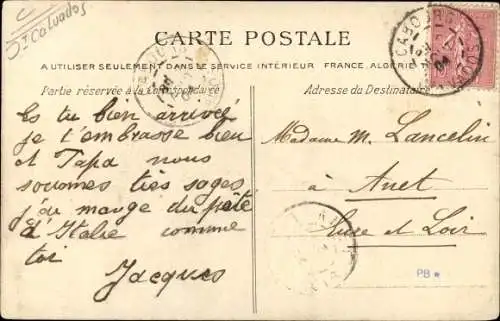 Calvados
CARTE POSTALE
A UTILISER SEULEMENT DANS LE SERVICE INTÉRIEUR FRANCE, ALGÉRIE
Partie réservée à la Correspondance
Adresse du Destinataire
CABOURG
Es tu bien arrivée
je t'embrasse bien
et Papa nous
sommes très sages
j'ai mangé du pâté
d'Italie comme
toi
Jacques
Madame M. Lancelin
à Anet
Eure et Loir
PB